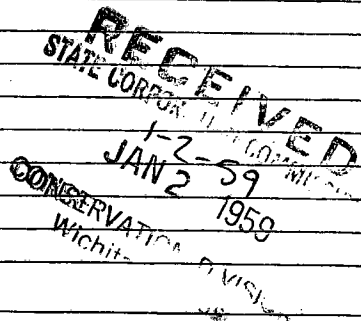 RECEIVED
STATE CORPORATION COMMISSION
1-2-59
JAN 2 1959
CONSERVATION DIVISION
Wichita